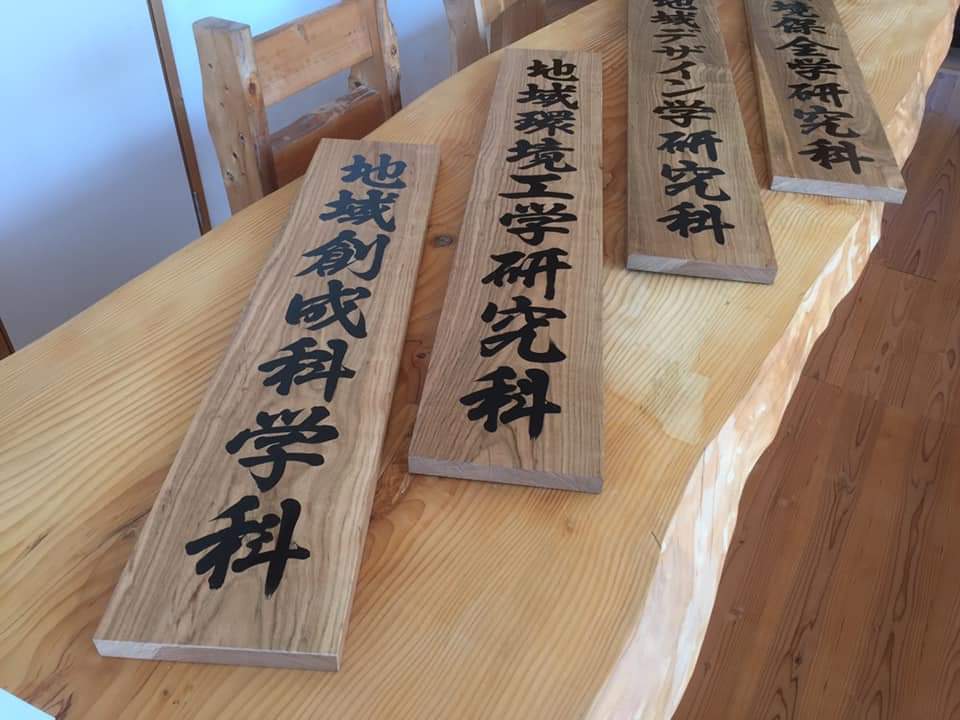 地域創成科学科
地域環境工学研究科
地域デザイン学研究科
境保全学研究科